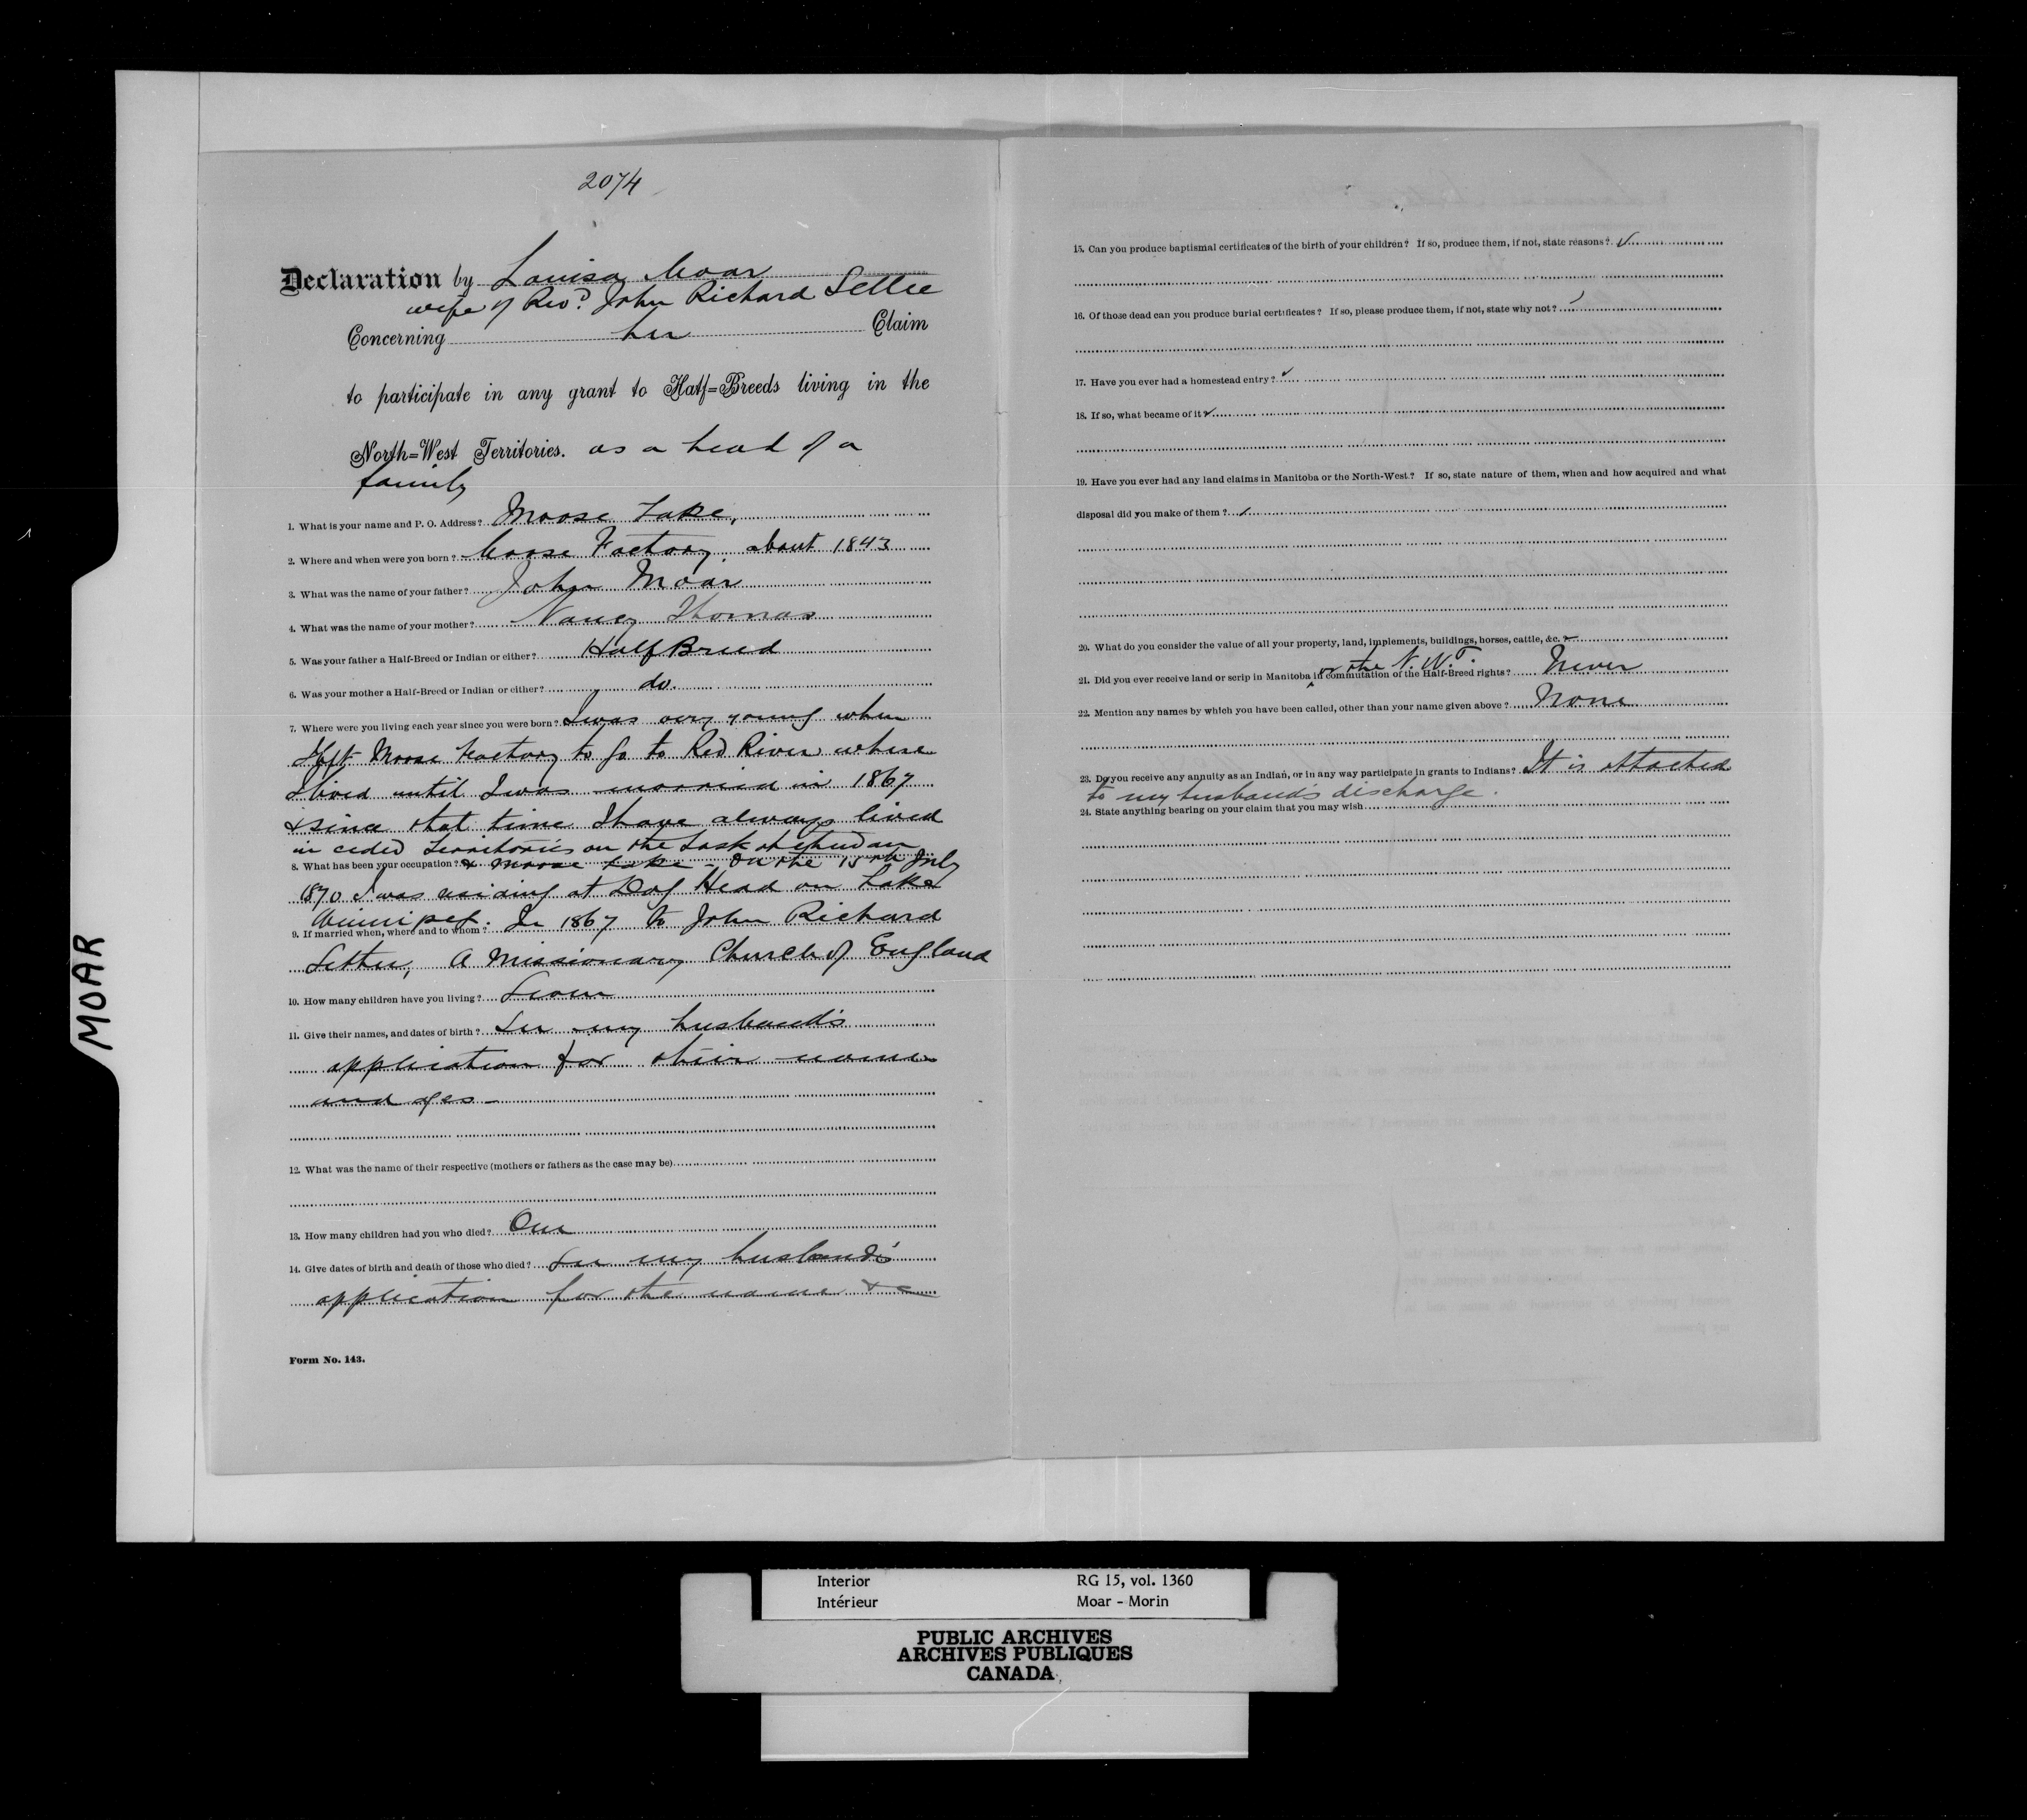 2074
Declaration by Louisa Moar
wife of Revd. John Richard Settee
Concerning her Claim
to participate in any grant to Half=Breeds living in the
North=West Territories. as a head of a
family
1. What is your name and P. O. Address? Moose Lake,
2. Where and when were you born? Moose Factory about 1843
3. What was the name of your father? John Moar
4. What was the name of your mother? Nancy Thomas
5. Was your father a Half-Breed or Indian or either? Half Breed
6. Was your mother a Half-Breed or Indian or either? do.
7. Where were you living each year since you were born? I was very young when
I left Moose Factory to go to Red River where
I lived until I was married in 1867
& since that time I have always lived
in ceded Territories on the Saskatchewan
8. What has been your occupation? & Moose Lake - On the 15th July
1870 I was residing at Dog Head on Lake
Winnipeg.
9. If married when, where and to whom? In 1867 to John Richard
Settee, A Missionary Church of England
10. How many children have you living? Seven
11. Give their names, and dates of birth? See my husband's
application for their names
and ages -
12. What was the name of their respective (mothers or fathers as the case may be)
13. How many children had you who died? One
14. Give dates of birth and death of those who died? See my husband's
application for the name &c
Form No. 143.
15. Can you produce baptismal certificates of the birth of your children? If so, produce them, if not, state reasons?
16. Of those dead can you produce burial certificates? If so, please produce them, if not, state why not?
17. Have you ever had a homestead entry?
18. If so, what became of it
19. Have you ever had any land claims in Manitoba or the North-West? If so, state nature of them, when and how acquired and what
disposal did you make of them?
20. What do you consider the value of all your property, land, implements, buildings, horses, cattle, &c.
or the N.W.T.
21. Did you ever receive land or scrip in Manitoba in commutation of the Half-Breed rights? Never
22. Mention any names by which you have been called, other than your name given above? None
23. Do you receive any annuity as an Indian, or in any way participate in grants to Indians? It is attached
to my husband's discharge.
24. State anything bearing on your claim that you may wish
MOAR
Interior RG 15, vol. 1360
Intérieur Moar - Morin
PUBLIC ARCHIVES
ARCHIVES PUBLIQUES
CANADA